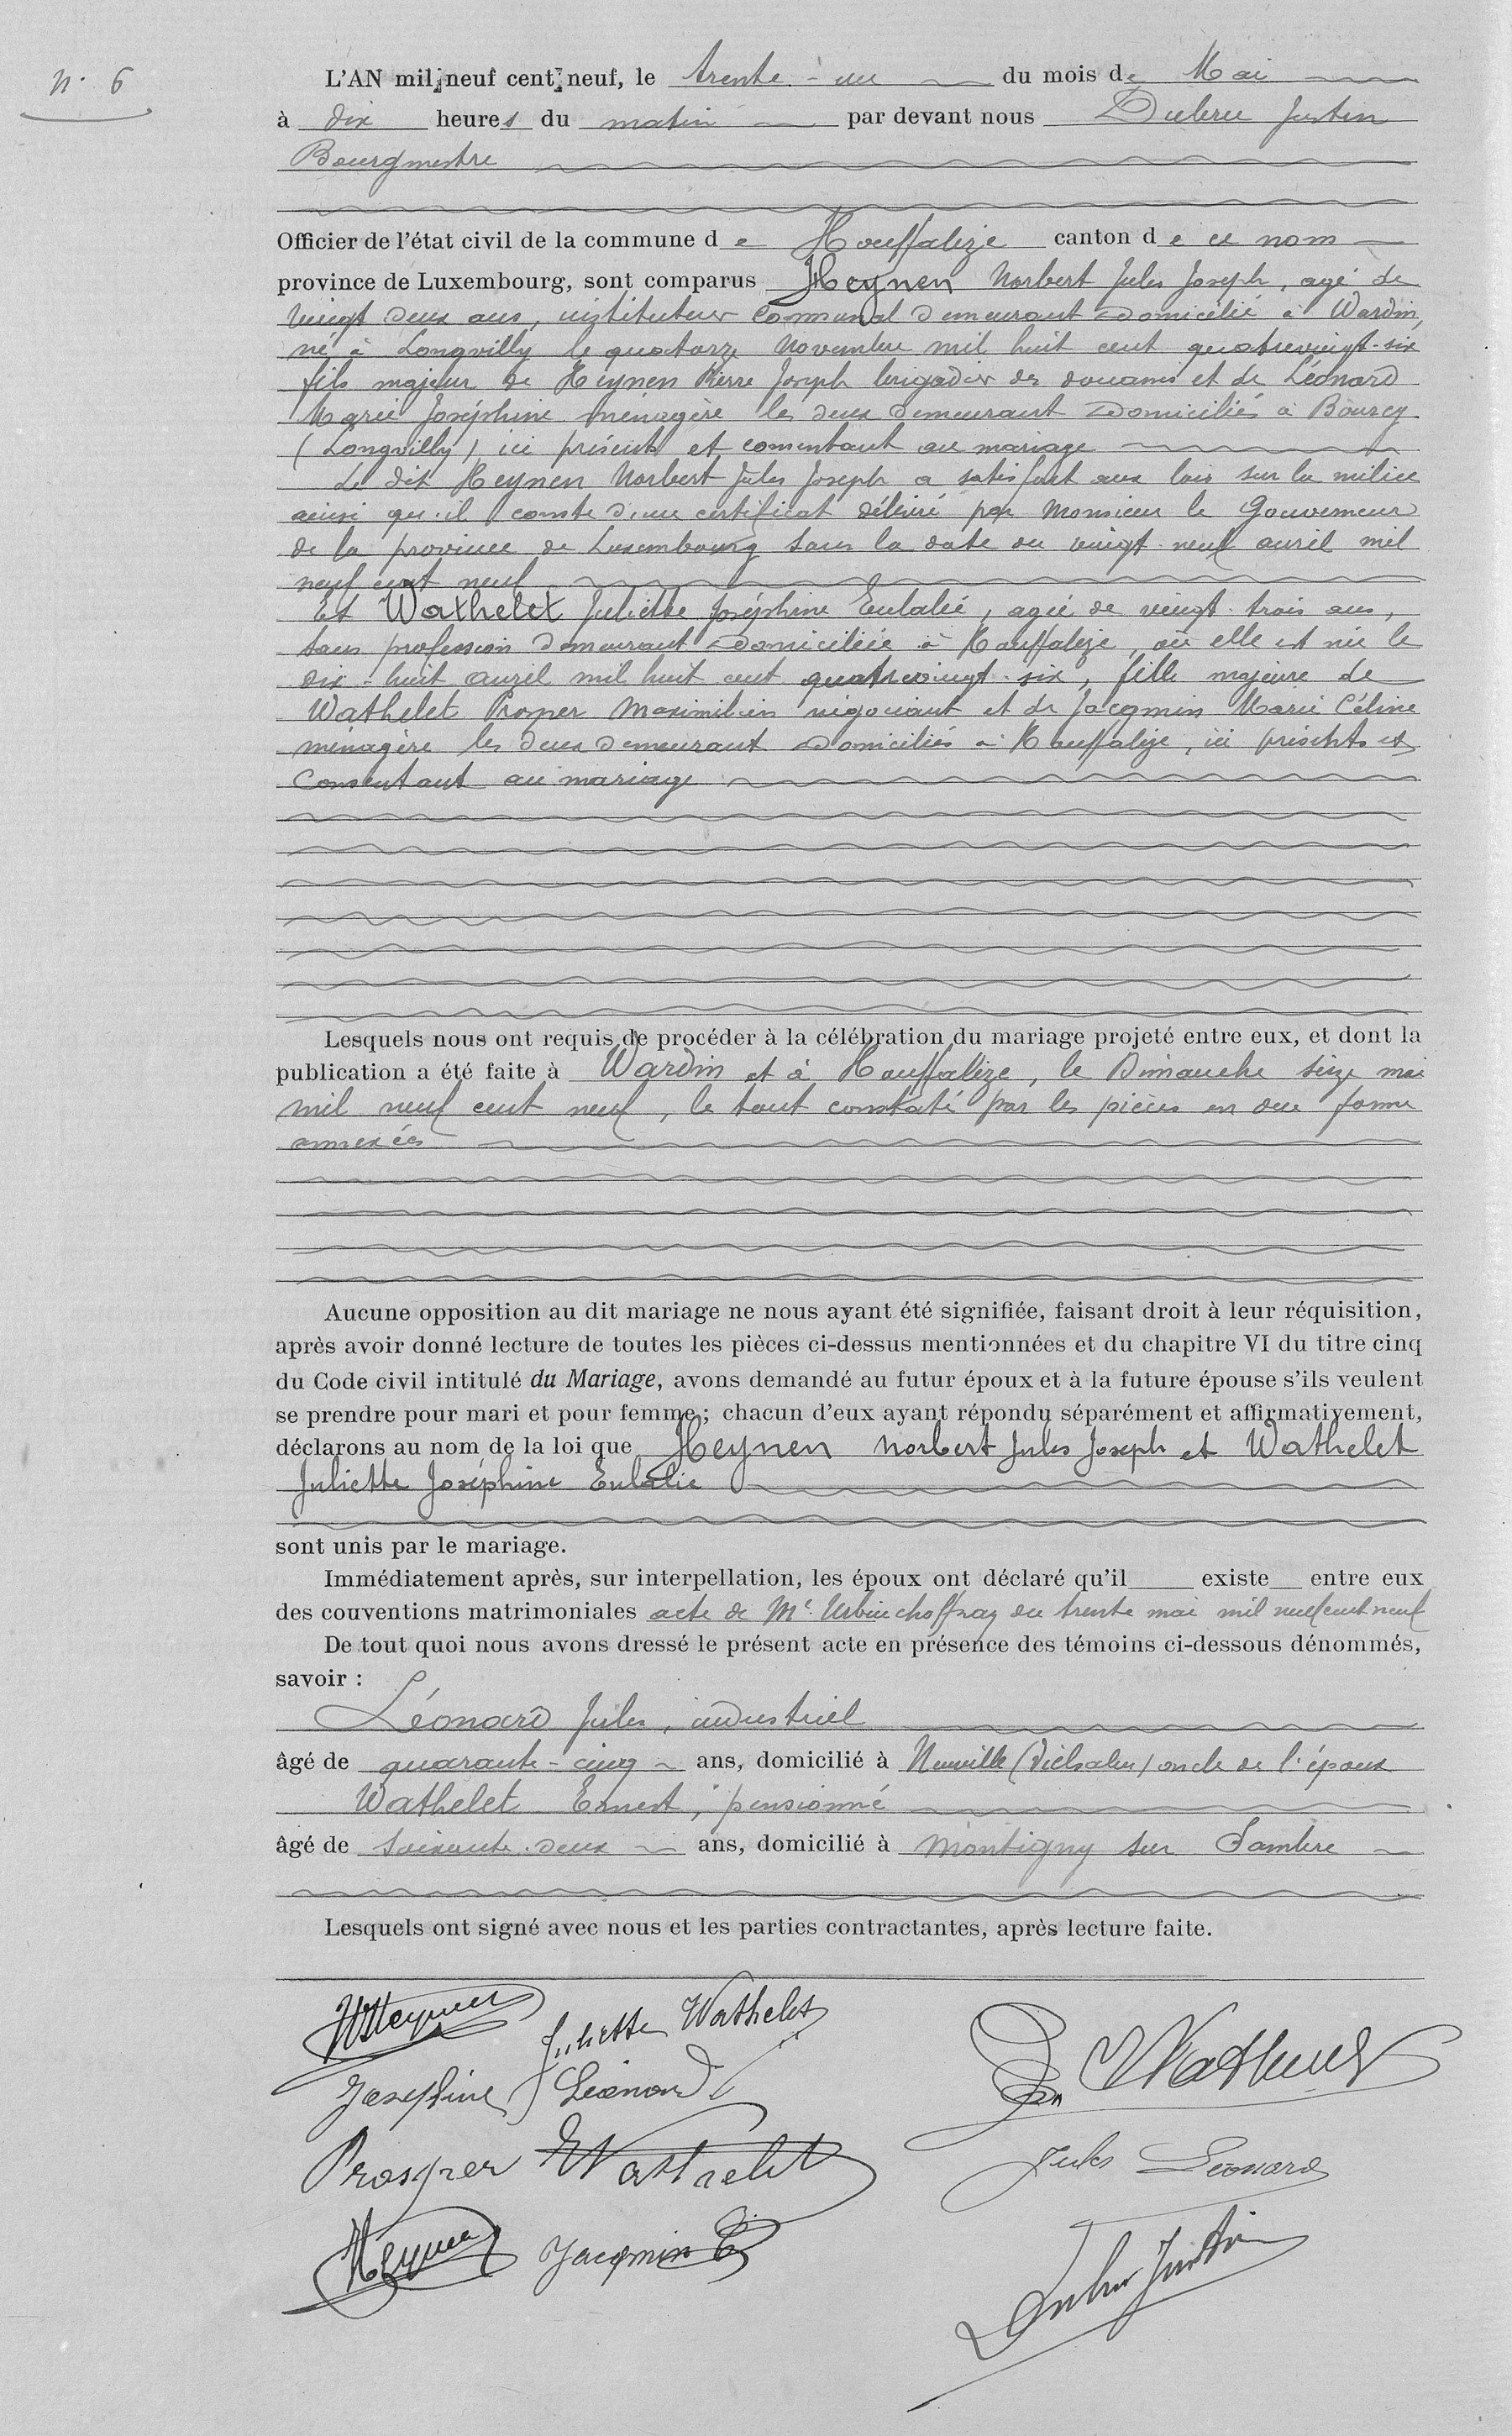 N. 6
L'AN mil neuf cent neuf, le trente-un du mois de Mai
à dix heures du matin par devant nous Dubru Justin
Bourgmestre
Officier de l'état civil de la commune de Houffalize canton de ce nom
province de Luxembourg, sont comparus Heynen Norbert Jules Joseph, agé de
vingt deux ans, instituteur communal demeurant domicilié à Wardin,
né à Longvilly le quatorze Novembre mil huit cent quatrevingt-six
fils majeur de Heynen Pierre Joseph brigadier des douanes et de Léonard
Marie Joséphine ménagère les deux demeurant domiciliés à Bourcy
(Longvilly) ici présents et consentant au mariage
Le dit Heynen Norbert Jules Joseph a satisfait aux lois sur la milice
ainsi qu'il conste d'un certificat délivré par Monsieur le Gouverneur
de la province de Luxembourg sous la date du vingt-neuf avril mil
neuf cent neuf
Et Wathelet Juliette Joséphine Eulalie, agée de vingt-trois ans,
sans profession demeurant domiciliée à Houffalize, où elle est née le
dix-huit avril mil huit cent quatrevingt-six, fille majeure de
Wathelet Prosper Maximilien négociant et de Jacqmin Marie Céline
ménagère les deux demeurant domiciliés à Houffalize, ici présents et
consentant au mariage
Lesquels nous ont requis de procéder à la célébration du mariage projeté entre eux, et dont la
publication a été faite à Wardin et à Houffalize, le Dimanche seize mai
mil neuf cent neuf, le tout constaté par les pièces en due forme
annexées
Aucune opposition au dit mariage ne nous ayant été signifiée, faisant droit à leur réquisition,
après avoir donné lecture de toutes les pièces ci-dessus mentionnées et du chapitre VI du titre cinq
du Code civil intitulé du Mariage, avons demandé au futur époux et à la future épouse s'ils veulent
se prendre pour mari et pour femme; chacun d'eux ayant répondu séparément et affirmativement,
déclarons au nom de la loi que Heynen Norbert Jules Joseph et Wathelet
Juliette Joséphine Eulalie
sont unis par le mariage.
Immédiatement après, sur interpellation, les époux ont déclaré qu'il existe entre eux
des conventions matrimoniales acte de Me Urbin choffray du trente mai mil neuf cent neuf
De tout quoi nous avons dressé le présent acte en présence des témoins ci-dessous dénommés,
savoir :
Léonard Jules, industriel
âgé de quarante-cinq ans, domicilié à Neuville (Vielsalm) oncle de l'époux
Wathelet Ernest, pensionné
âgé de soixante-deux ans, domicilié à Montigny sur Sambre
Lesquels ont signé avec nous et les parties contractantes, après lecture faite.
NHeynen Juliette Wathelet
Wathelet
Joséphine Léonard
Prosper Wathelet
Jules Léonard
Heynen Jacqmin C
Dubru Justin